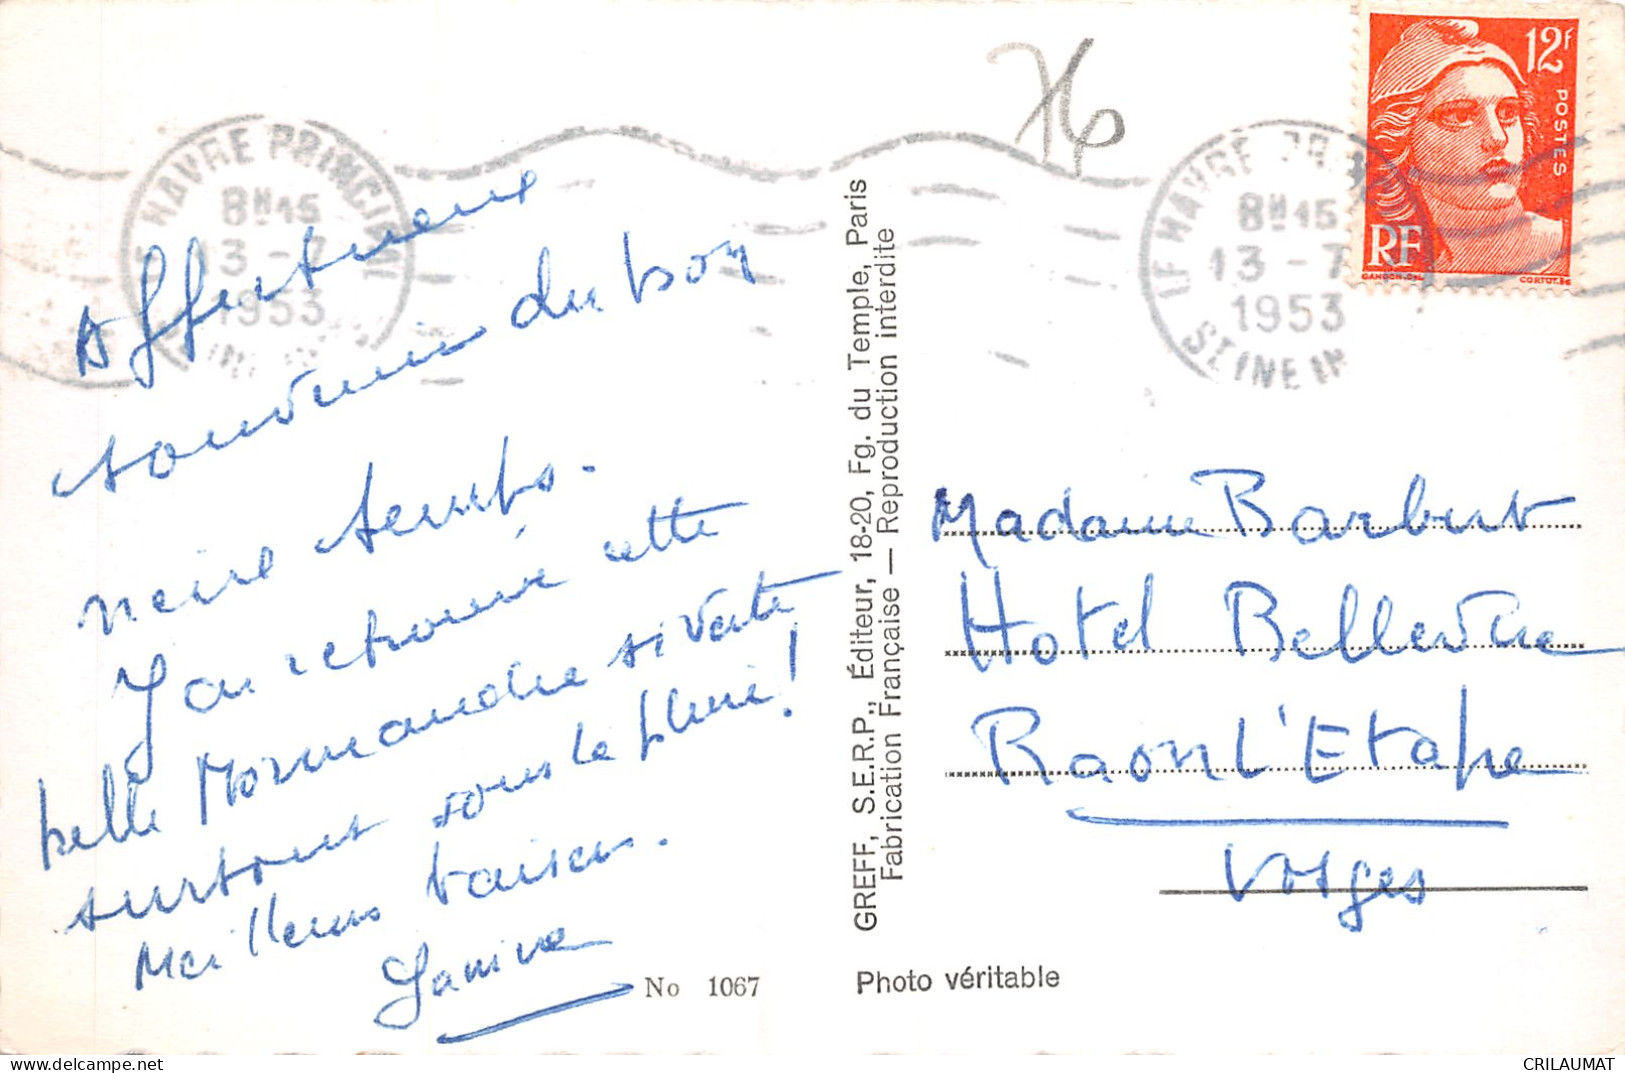 Affectueux
souvenir du bon
vieux temps.
J'ai retrouvé cette
belle Normandie si verte
surtout sous la pluie!
Meilleurs baisers.
Janine
No 1067
GREFF, S.E.R.P., Éditeur, 18-20, Fg. du Temple, Paris
Fabrication Française — Reproduction interdite
Photo véritable
76
LE HAVRE PRINCIPAL
8H15
13-7
1953
SEINE INF
LE HAVRE PR
8H15
13-7
1953
SEINE IN
12f
POSTES
RF
GANDON-DEL
CORTOT.SC
Madame Barbert
Hotel Bellevue
Raon L'Etape
Vosges
www.delcampe.net
CRILAUMAT